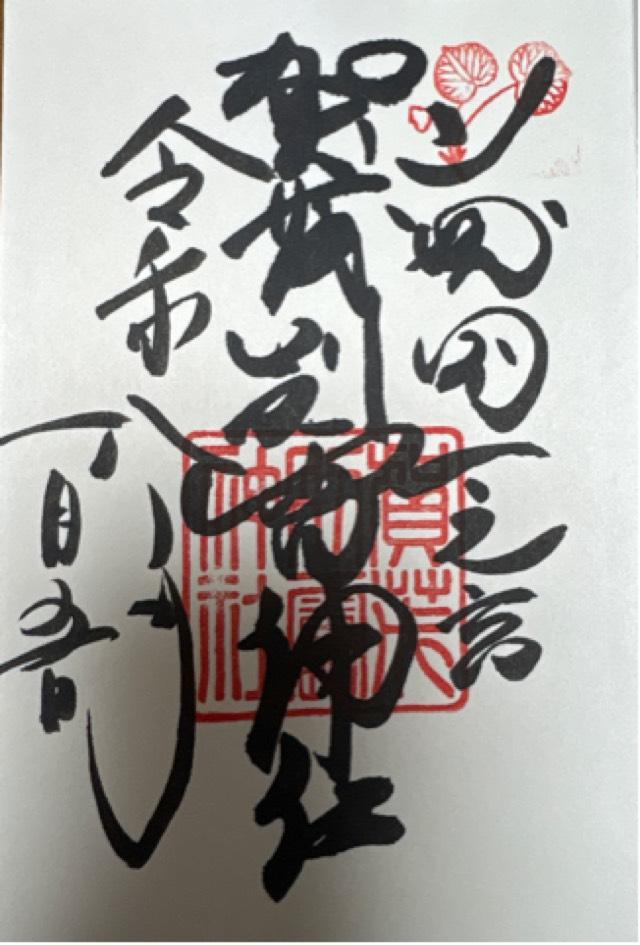 山城国一之宮
賀茂別雷神社
令和八年
一月五日
賀茂
別雷
神社